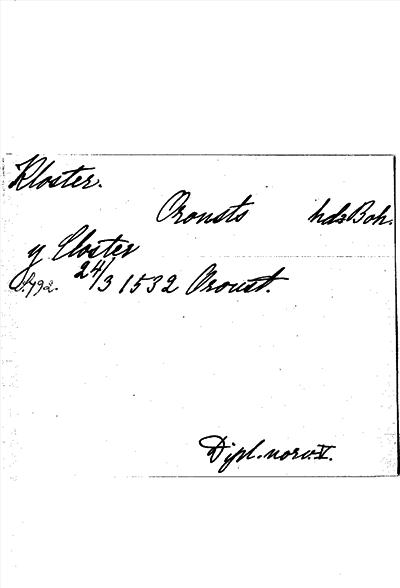 Kloster.
Orousts hds Boh.
y Closter
S. 792. 24/3 1532 Oroust.
Dipl. norv. V.